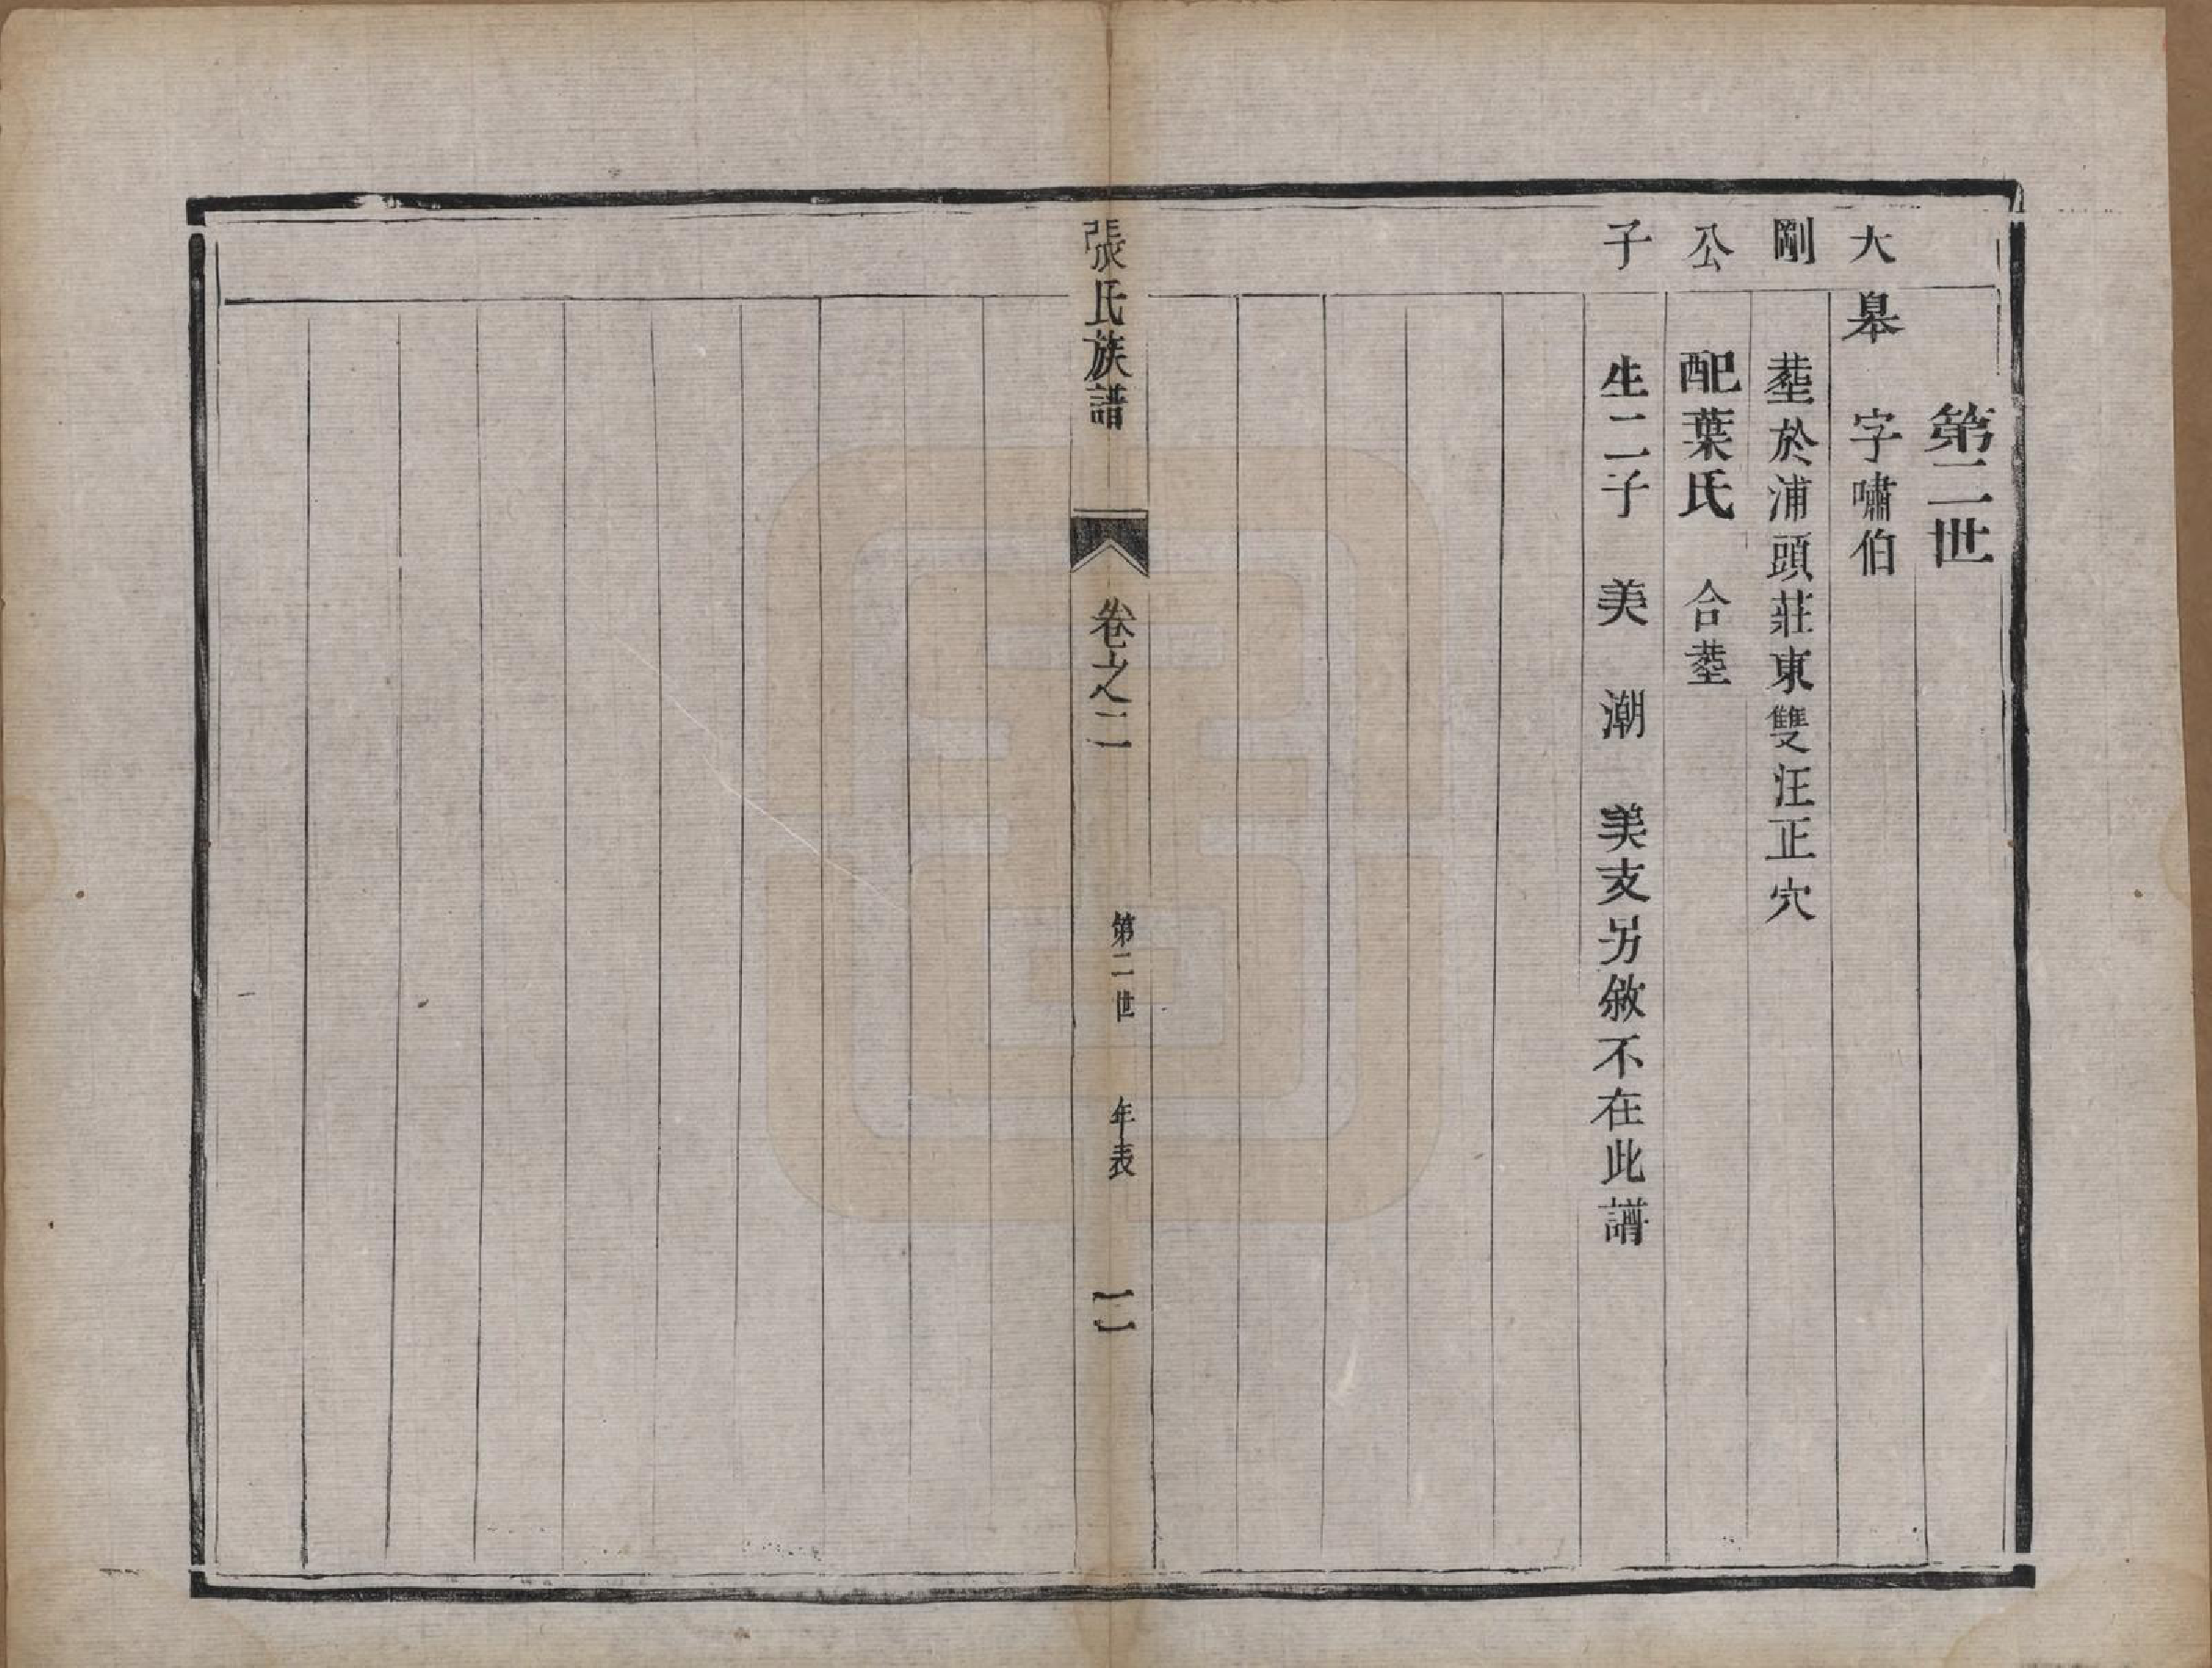 第二世
大皋 字嘯伯
剛 塟於浦頭莊東雙汪正穴
公 配葉氏 合塟
子 生二子 美 潮 美支另敘不在此譜
張氏族譜 卷之二 第二世 年表 二